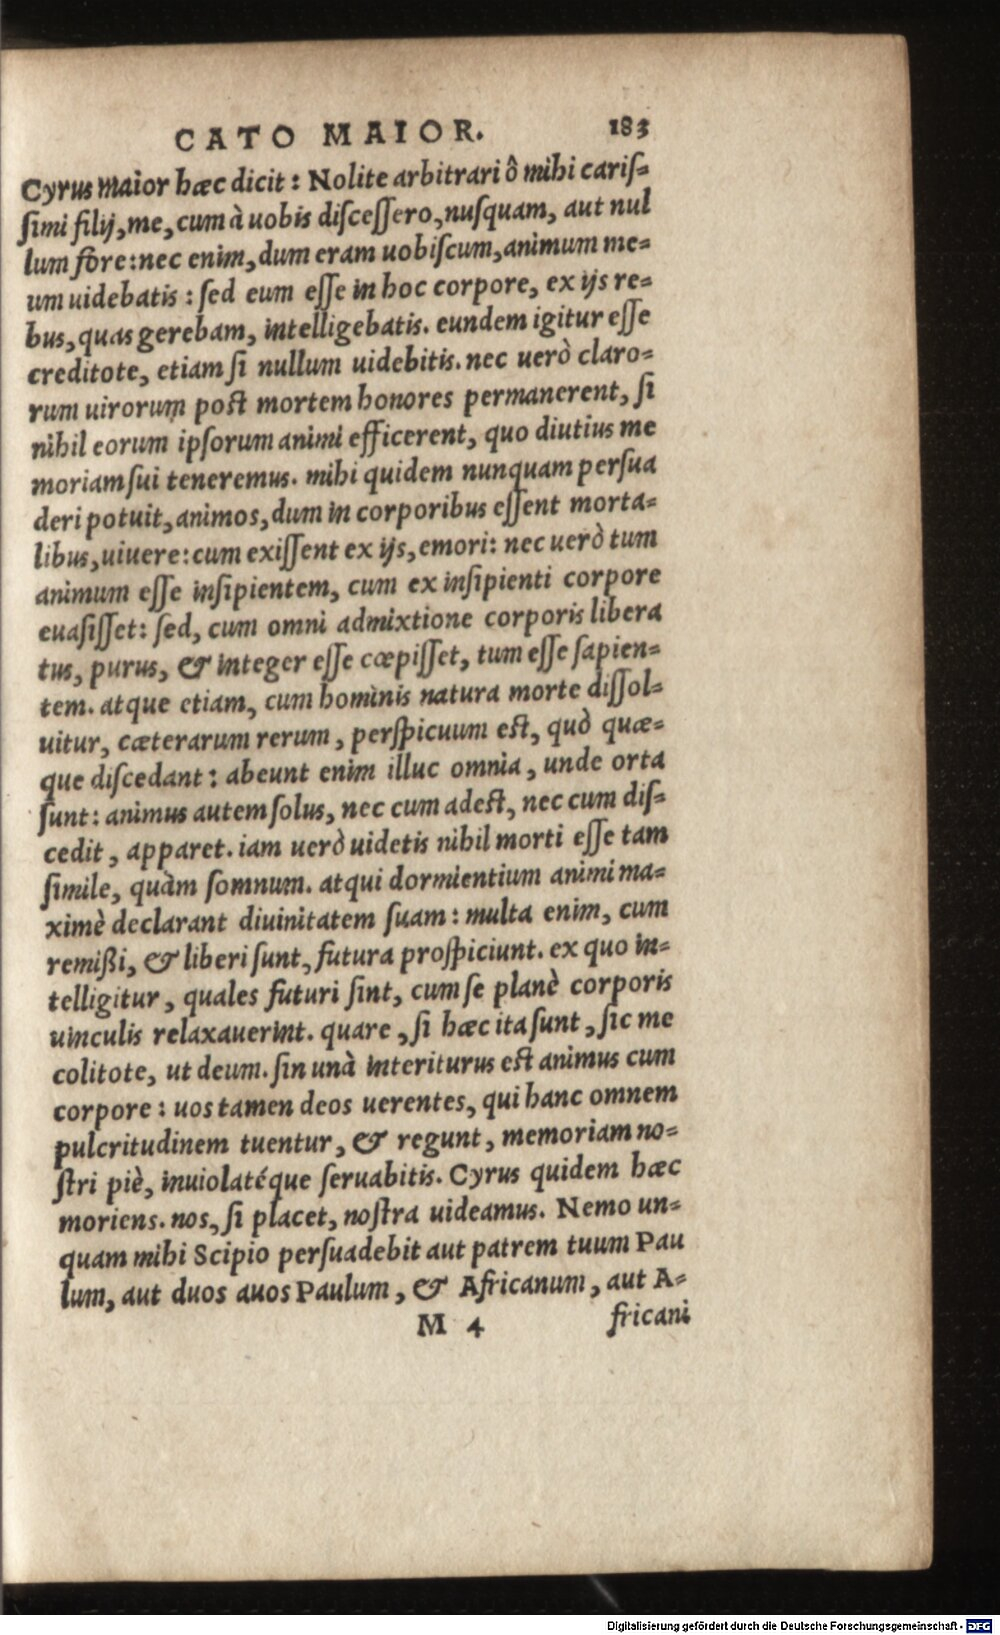 CATO MAIOR. 183
Cyrus Maior hæc dicit: Nolite arbitrari ô mihi cariſ-
ſimi filij, me, cum à uobis diſceſſero, nuſquam, aut nul
lum fore: nec enim, dum eram uobiſcum, animum me-
um uidebatis: ſed eum eſſe in hoc corpore, ex ijs re-
bus, quas gerebam, intelligebatis. eundem igitur eſſe
creditote, etiam ſi nullum uidebitis. nec uerò claro-
rum uirorum poſt mortem honores permanerent, ſi
nihil eorum ipſorum animi efficerent, quo diutius me
moriam ſui teneremus. mihi quidem nunquam perſua
deri potuit, animos, dum in corporibus eſſent morta-
libus, uiuere: cum exiſſent ex ijs, emori: nec uerò tum
animum eſſe inſipientem, cum ex inſipienti corpore
euaſiſſet: ſed, cum omni admixtione corporis libera
tus, purus, & integer eſſe cœpiſſet, tum eſſe ſapien-
tem. atque etiam, cum hominis natura morte diſſol-
uitur, cæterarum rerum, perſpicuum eſt, quò quæ-
que diſcedant: abeunt enim illuc omnia, unde orta
ſunt: animus autem ſolus, nec cum adeſt, nec cum diſ-
cedit, apparet. iam uerò uidetis nihil morti eſſe tam
ſimile, quàm ſomnum. atqui dormientium animi ma-
ximè declarant diuinitatem ſuam: multa enim, cum
remißi, & liberi ſunt, futura proſpiciunt. ex quo in-
telligitur, quales futuri ſint, cum ſe planè corporis
uinculis relaxauerint. quare, ſi hæc ita ſunt, ſic me
colitote, ut deum. ſin unà interiturus eſt animus cum
corpore: uos tamen deos uerentes, qui hanc omnem
pulcritudinem tuentur, & regunt, memoriam no-
ſtri piè, inuiolatéque ſeruabitis. Cyrus quidem hæc
moriens. nos, ſi placet, noſtra uideamus. Nemo un-
quam mihi Scipio perſuadebit aut patrem tuum Pau
lum, aut duos auos Paulum, & Africanum, aut A-
M 4 fricani
Digitalisierung gefördert durch die Deutsche Forschungsgemeinschaft - DFG